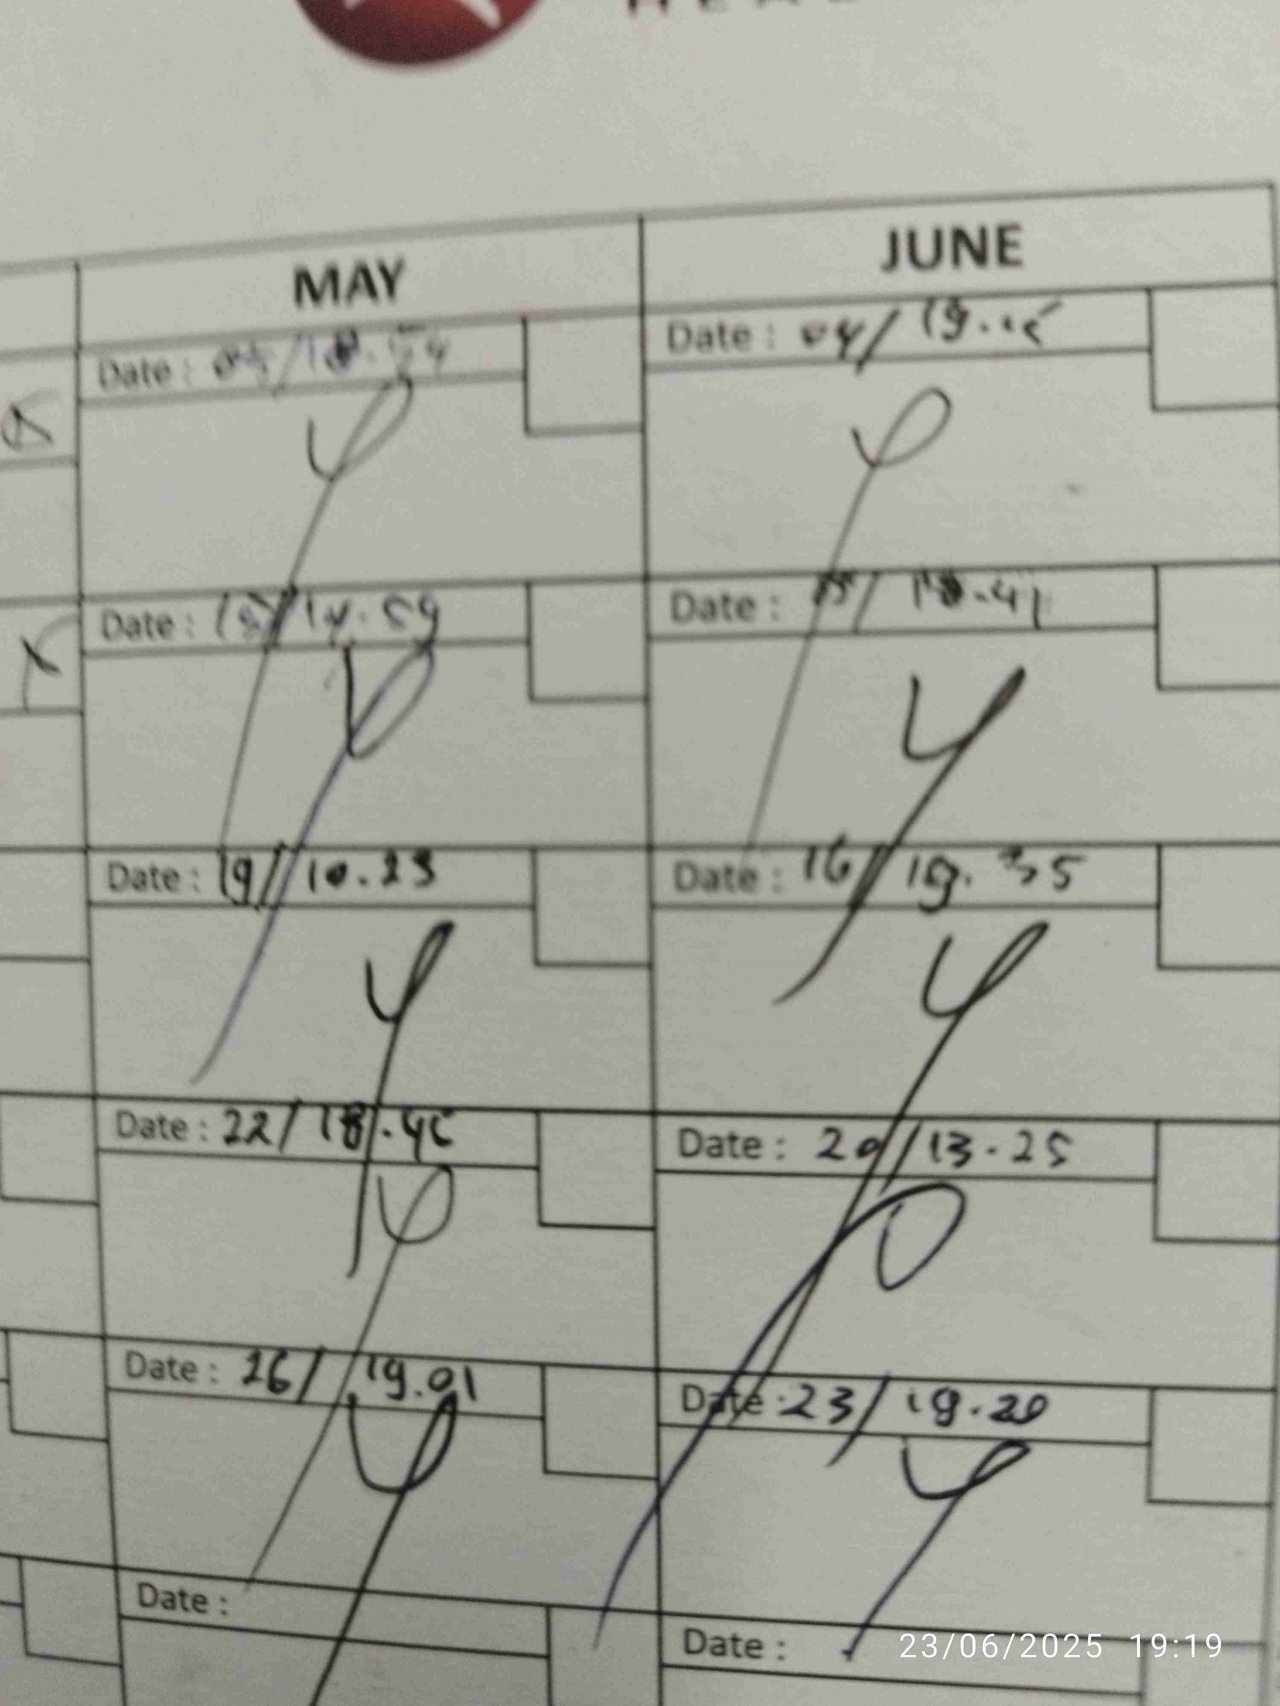 MAY
JUNE
Date :
Date : 04/
Date : 15/ 14.59
Date : 15/ 18.41
Date : 19// 10.23
Date : 16/ 19.35
Date : 22/ 18.45
Date : 20/13.25
Date : 26/ 19.01
Date : 23/ 19.20
Date :
Date :
23/06/2025 19:19